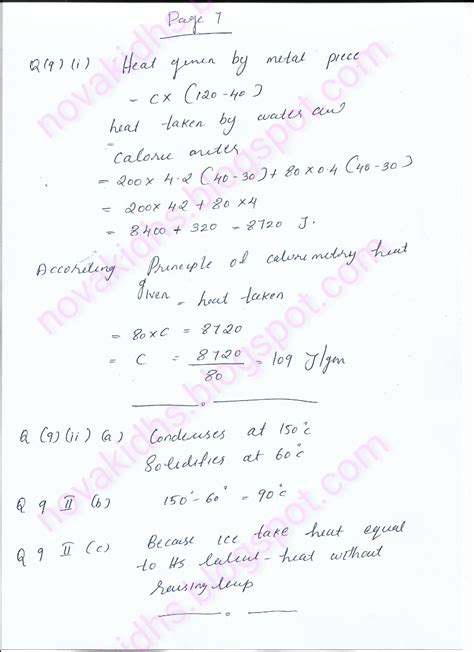 Page 7
Q(9) (i) Heat given by metal piece
= C× (120-40)
heat taken by water and
calori meter
= 200× 4.2 (40-30) + 80×0.4 (40-30)
= 200× 42 + 80 ×4
= 8400 + 320 = 8720 J.
According Principle of calorimetry heat
given = heat taken
= 80×C = 8720
= C = 8720/80 = 109 J/gm
Q (9) (ii) (a) Condenses at 150°c
Solidifies at 60°c
Q 9 II (b) 150°-60° = 90°c
Q 9 II (c) Because ice take heat equal
to Its latent-heat without
raising temp
novakidhs.blogspot.com
novakidhs.blogspot.com
novakidhs.blogspot.com